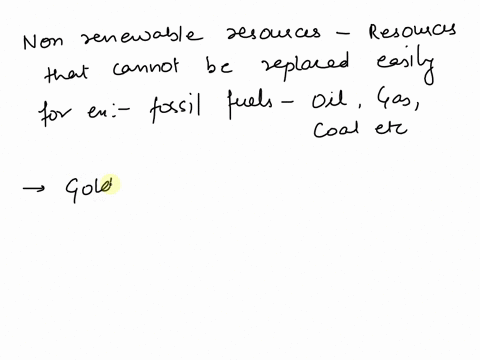 Non renewable resources - Resources
that cannot be replaced easily
for en:- fossil fuels - Oil, Gas,
Coal etc
→ Gold